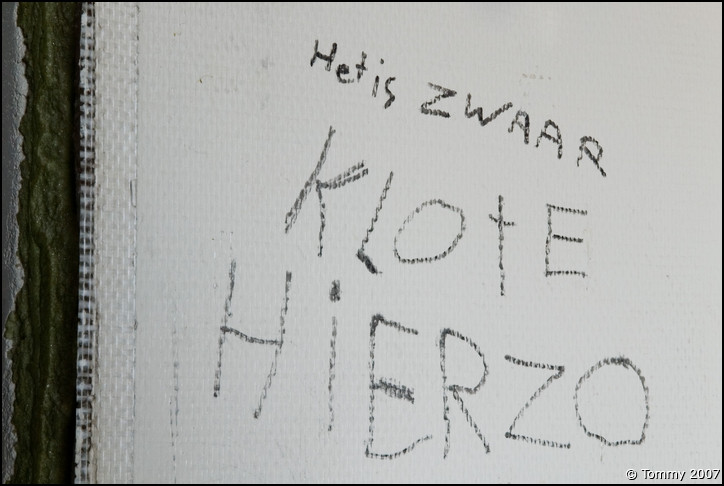 Het is ZWAAR
KLOtE
HiERZO
© Tommy 2007